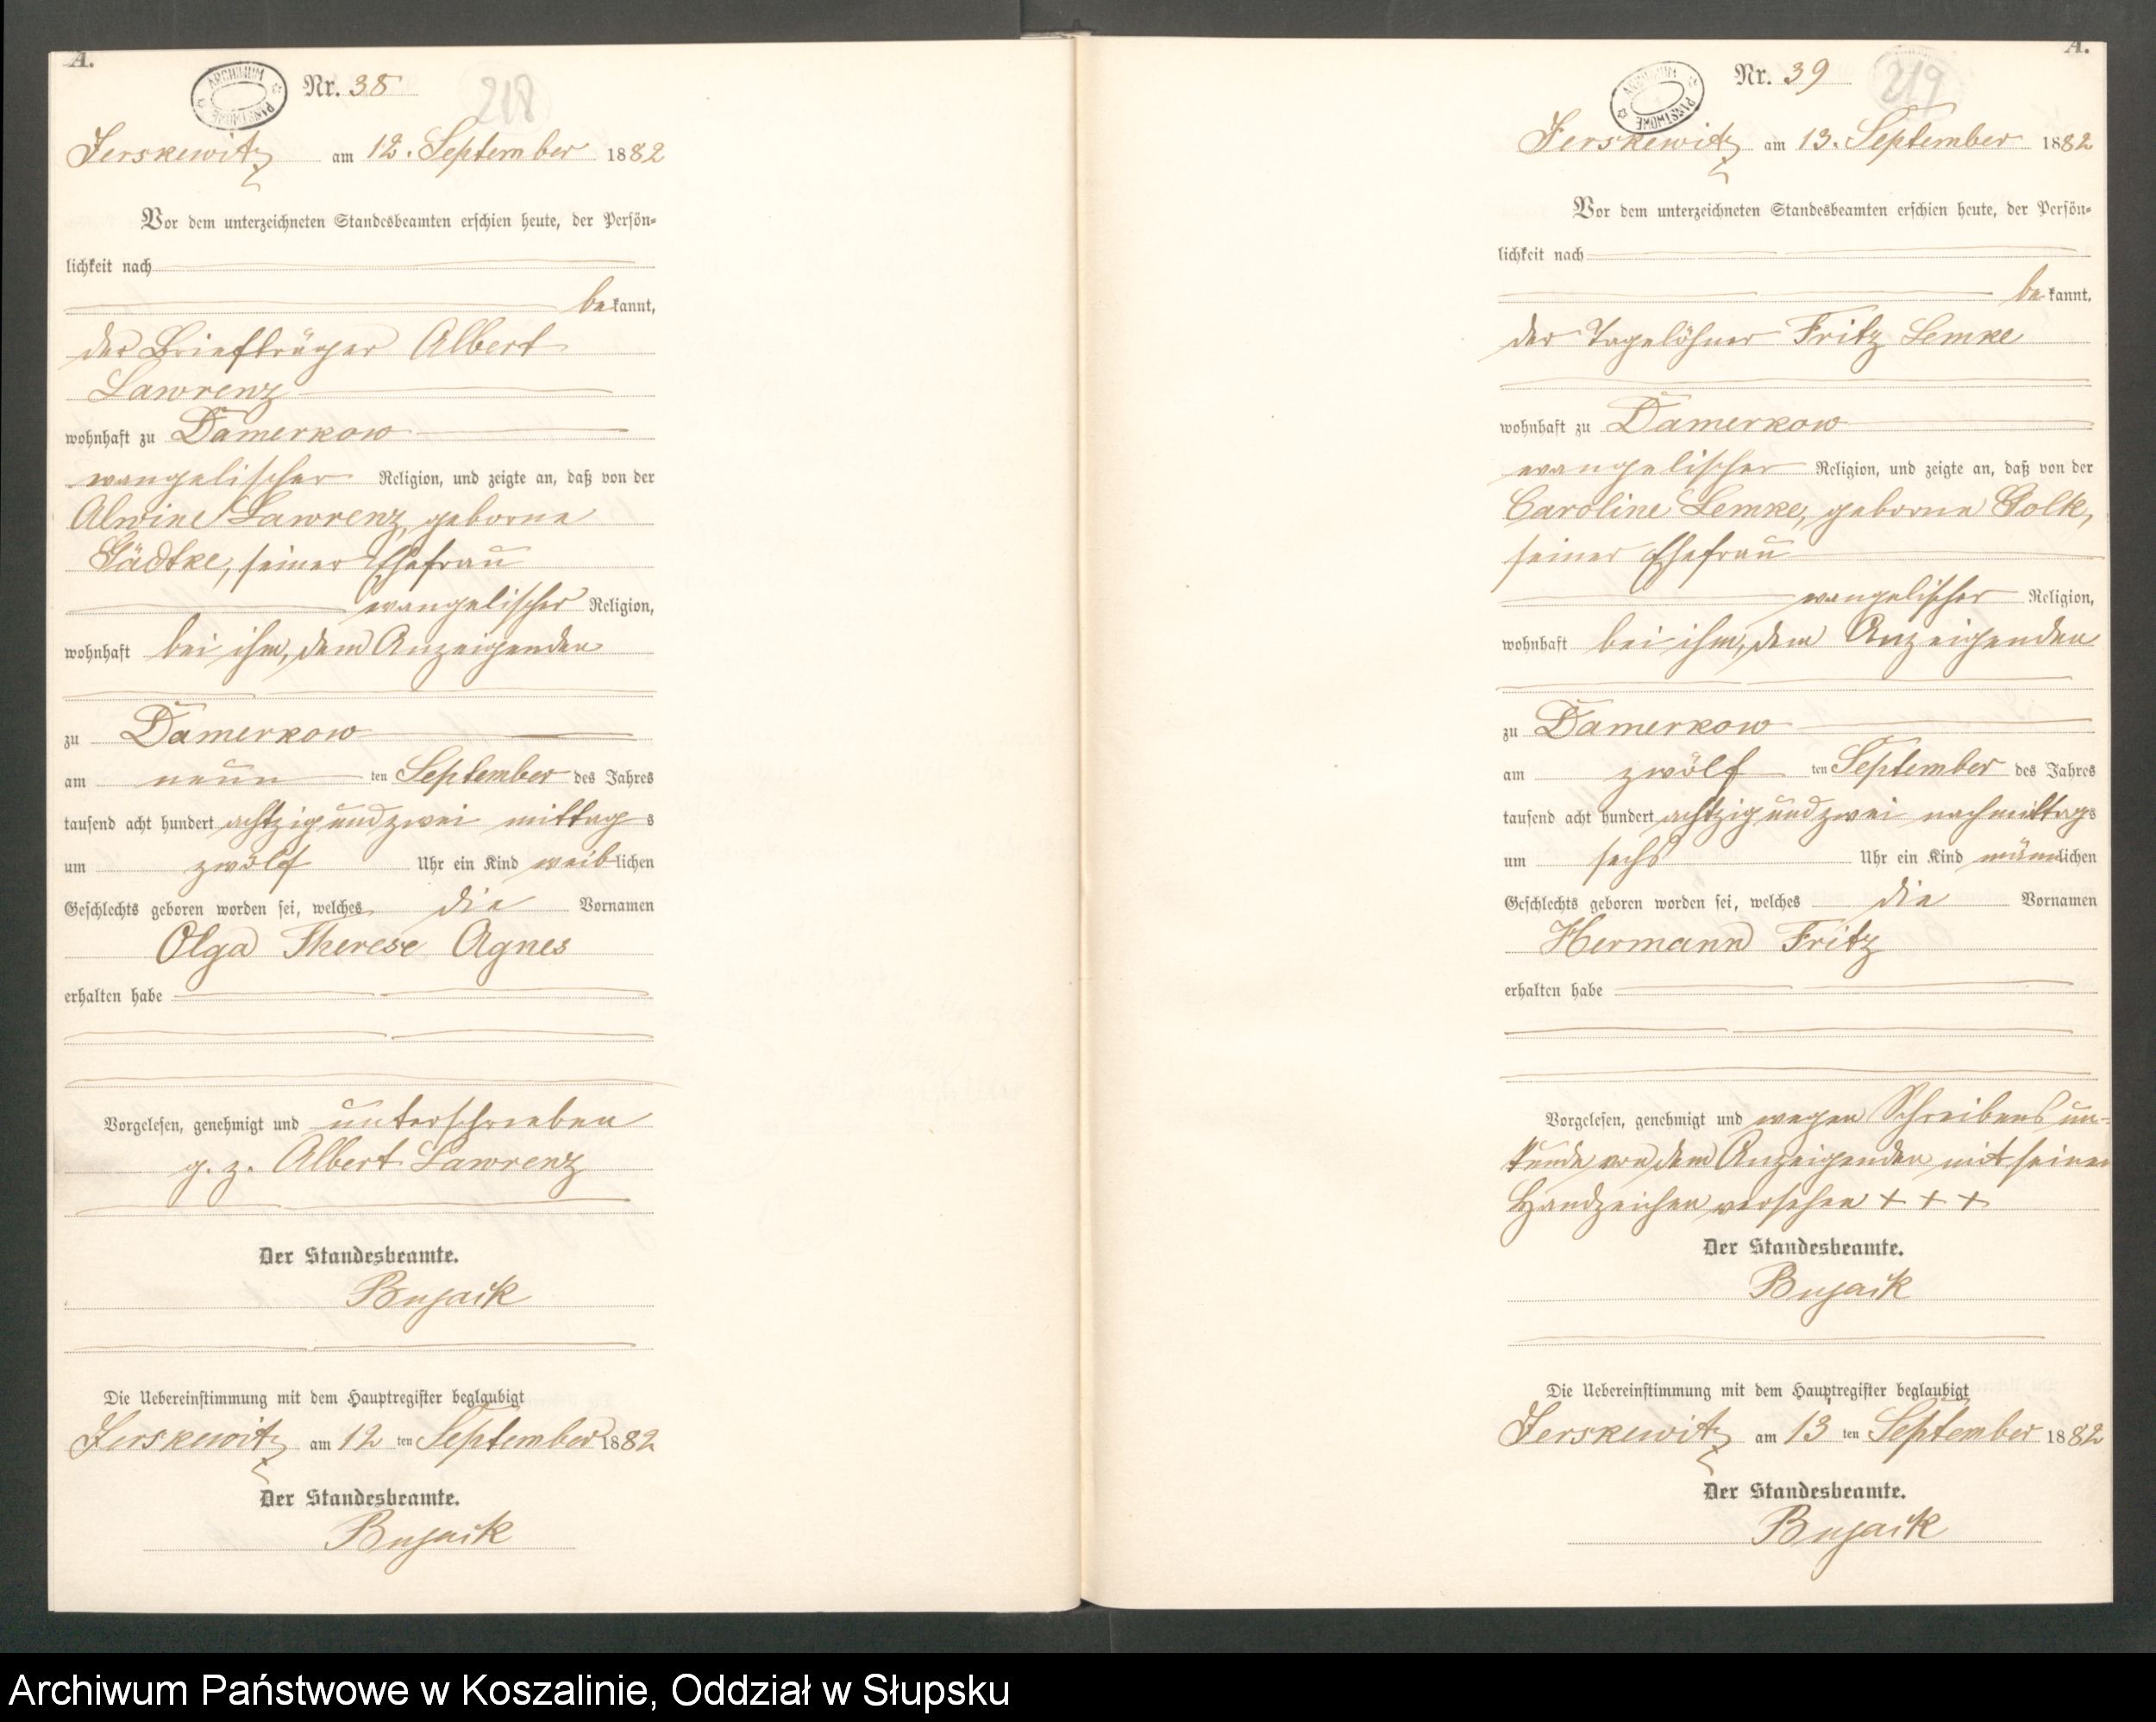 A.
ARCHIWUM PAŃSTWOWE
Nr. 38
218
Jerskewitz am 12. September 1882
Vor dem unterzeichneten Standesbeamten erschien heute, der Persön-
lichkeit nach
bekannt,
der Briefträger Albert
Lawrenz
wohnhaft zu Damerkow
evangelischer Religion, und zeigte an, daß von der
Alwine Lawrenz, geborne
Gädtke, seiner Ehefrau
evangelischer Religion,
wohnhaft bei ihm, dem Anzeigenden
zu Damerkow
am neun ten September des Jahres
tausend acht hundert achtzig und zwei mittags
um zwölf Uhr ein Kind weiblichen
Geschlechts geboren worden sei, welches die Vornamen
Olga Therese Agnes
erhalten habe
Vorgelesen, genehmigt und unterschrieben
g. z. Albert Lawrenz
Der Standesbeamte.
Bujack
Die Uebereinstimmung mit dem Hauptregister beglaubigt
Jerskewitz am 12 ten September 1882
Der Standesbeamte.
Bujack
A.
ARCHIWUM PAŃSTWOWE
Nr. 39
219
Jerskewitz am 13. September 1882
Vor dem unterzeichneten Standesbeamten erschien heute, der Persön-
lichkeit nach
bekannt,
der Tagelöhner Fritz Lemke
wohnhaft zu Damerkow
evangelischer Religion, und zeigte an, daß von der
Caroline Lemke, geborne Golk,
seiner Ehefrau
evangelischer Religion,
wohnhaft bei ihm, dem Anzeigenden
zu Damerkow
am zwölf ten September des Jahres
tausend acht hundert achtzig und zwei nachmittags
um sechs Uhr ein Kind männlichen
Geschlechts geboren worden sei, welches die Vornamen
Hermann Fritz
erhalten habe
Vorgelesen, genehmigt und wegen Schreibens un-
kunde von dem Anzeigenden mit seinem
Handzeichen versehen + + +
Der Standesbeamte.
Bujack
Die Uebereinstimmung mit dem Hauptregister beglaubigt
Jerskewitz am 13 ten September 1882
Der Standesbeamte.
Bujack
Archiwum Państwowe w Koszalinie, Oddział w Słupsku